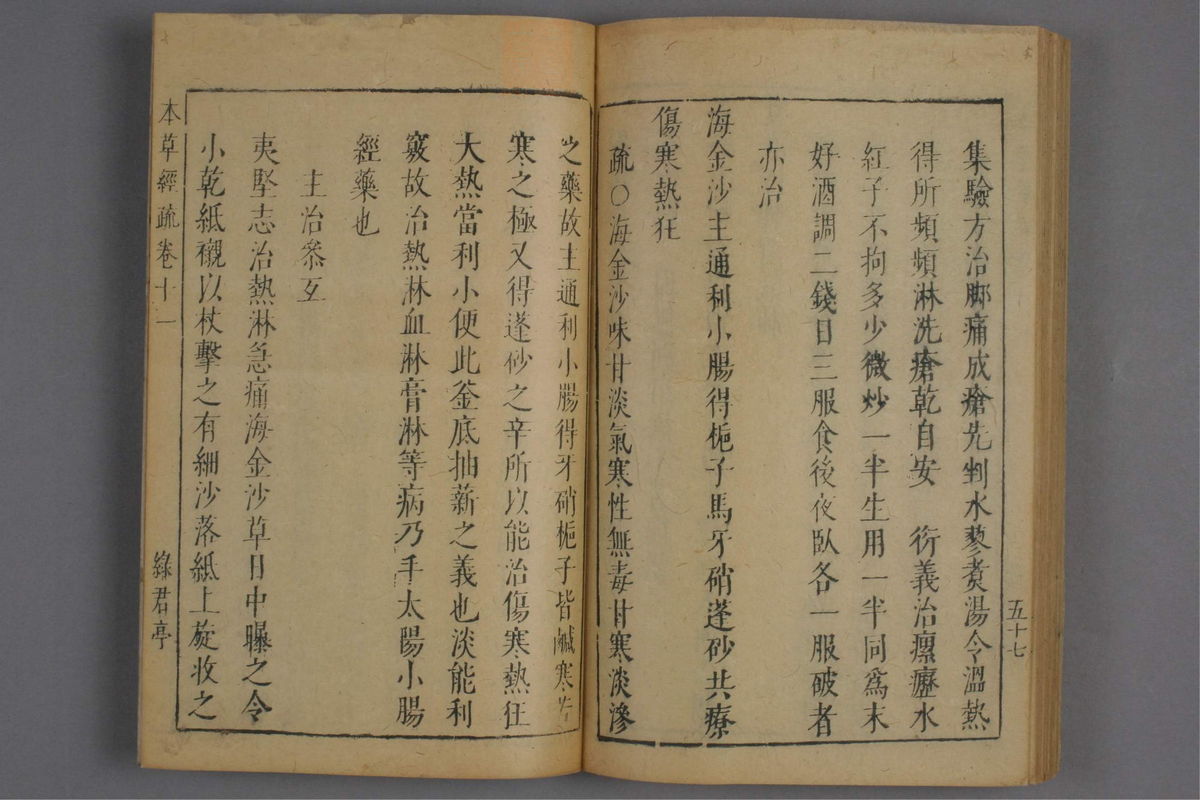 集驗方治脚痛成瘡先剉水蓼煑湯令溫熱
得所頻頻淋洗瘡乾自安　衍義治瘰癧水
紅子不拘多少微炒一半生用一半同爲末
好酒調二錢日三服食後夜臥各一服破者
亦治
海金沙主通利小腸得梔子馬牙硝蓬砂共療
傷寒熱狂
疏○海金沙味甘淡氣寒性無毒甘寒淡滲
五十七
之藥故主通利小腸得牙硝梔子皆鹹寒苦
寒之極又得蓬砂之辛所以能治傷寒熱狂
大熱當利小便此釜底抽薪之義也淡能利
竅故治熱淋血淋膏淋等病乃手太陽小腸
經藥也
主治叅互
夷堅志治熱淋急痛海金沙草日中曝之令
小乾紙襯以杖擊之有細沙落紙上旋收之
本草經疏卷十一
綠君亭